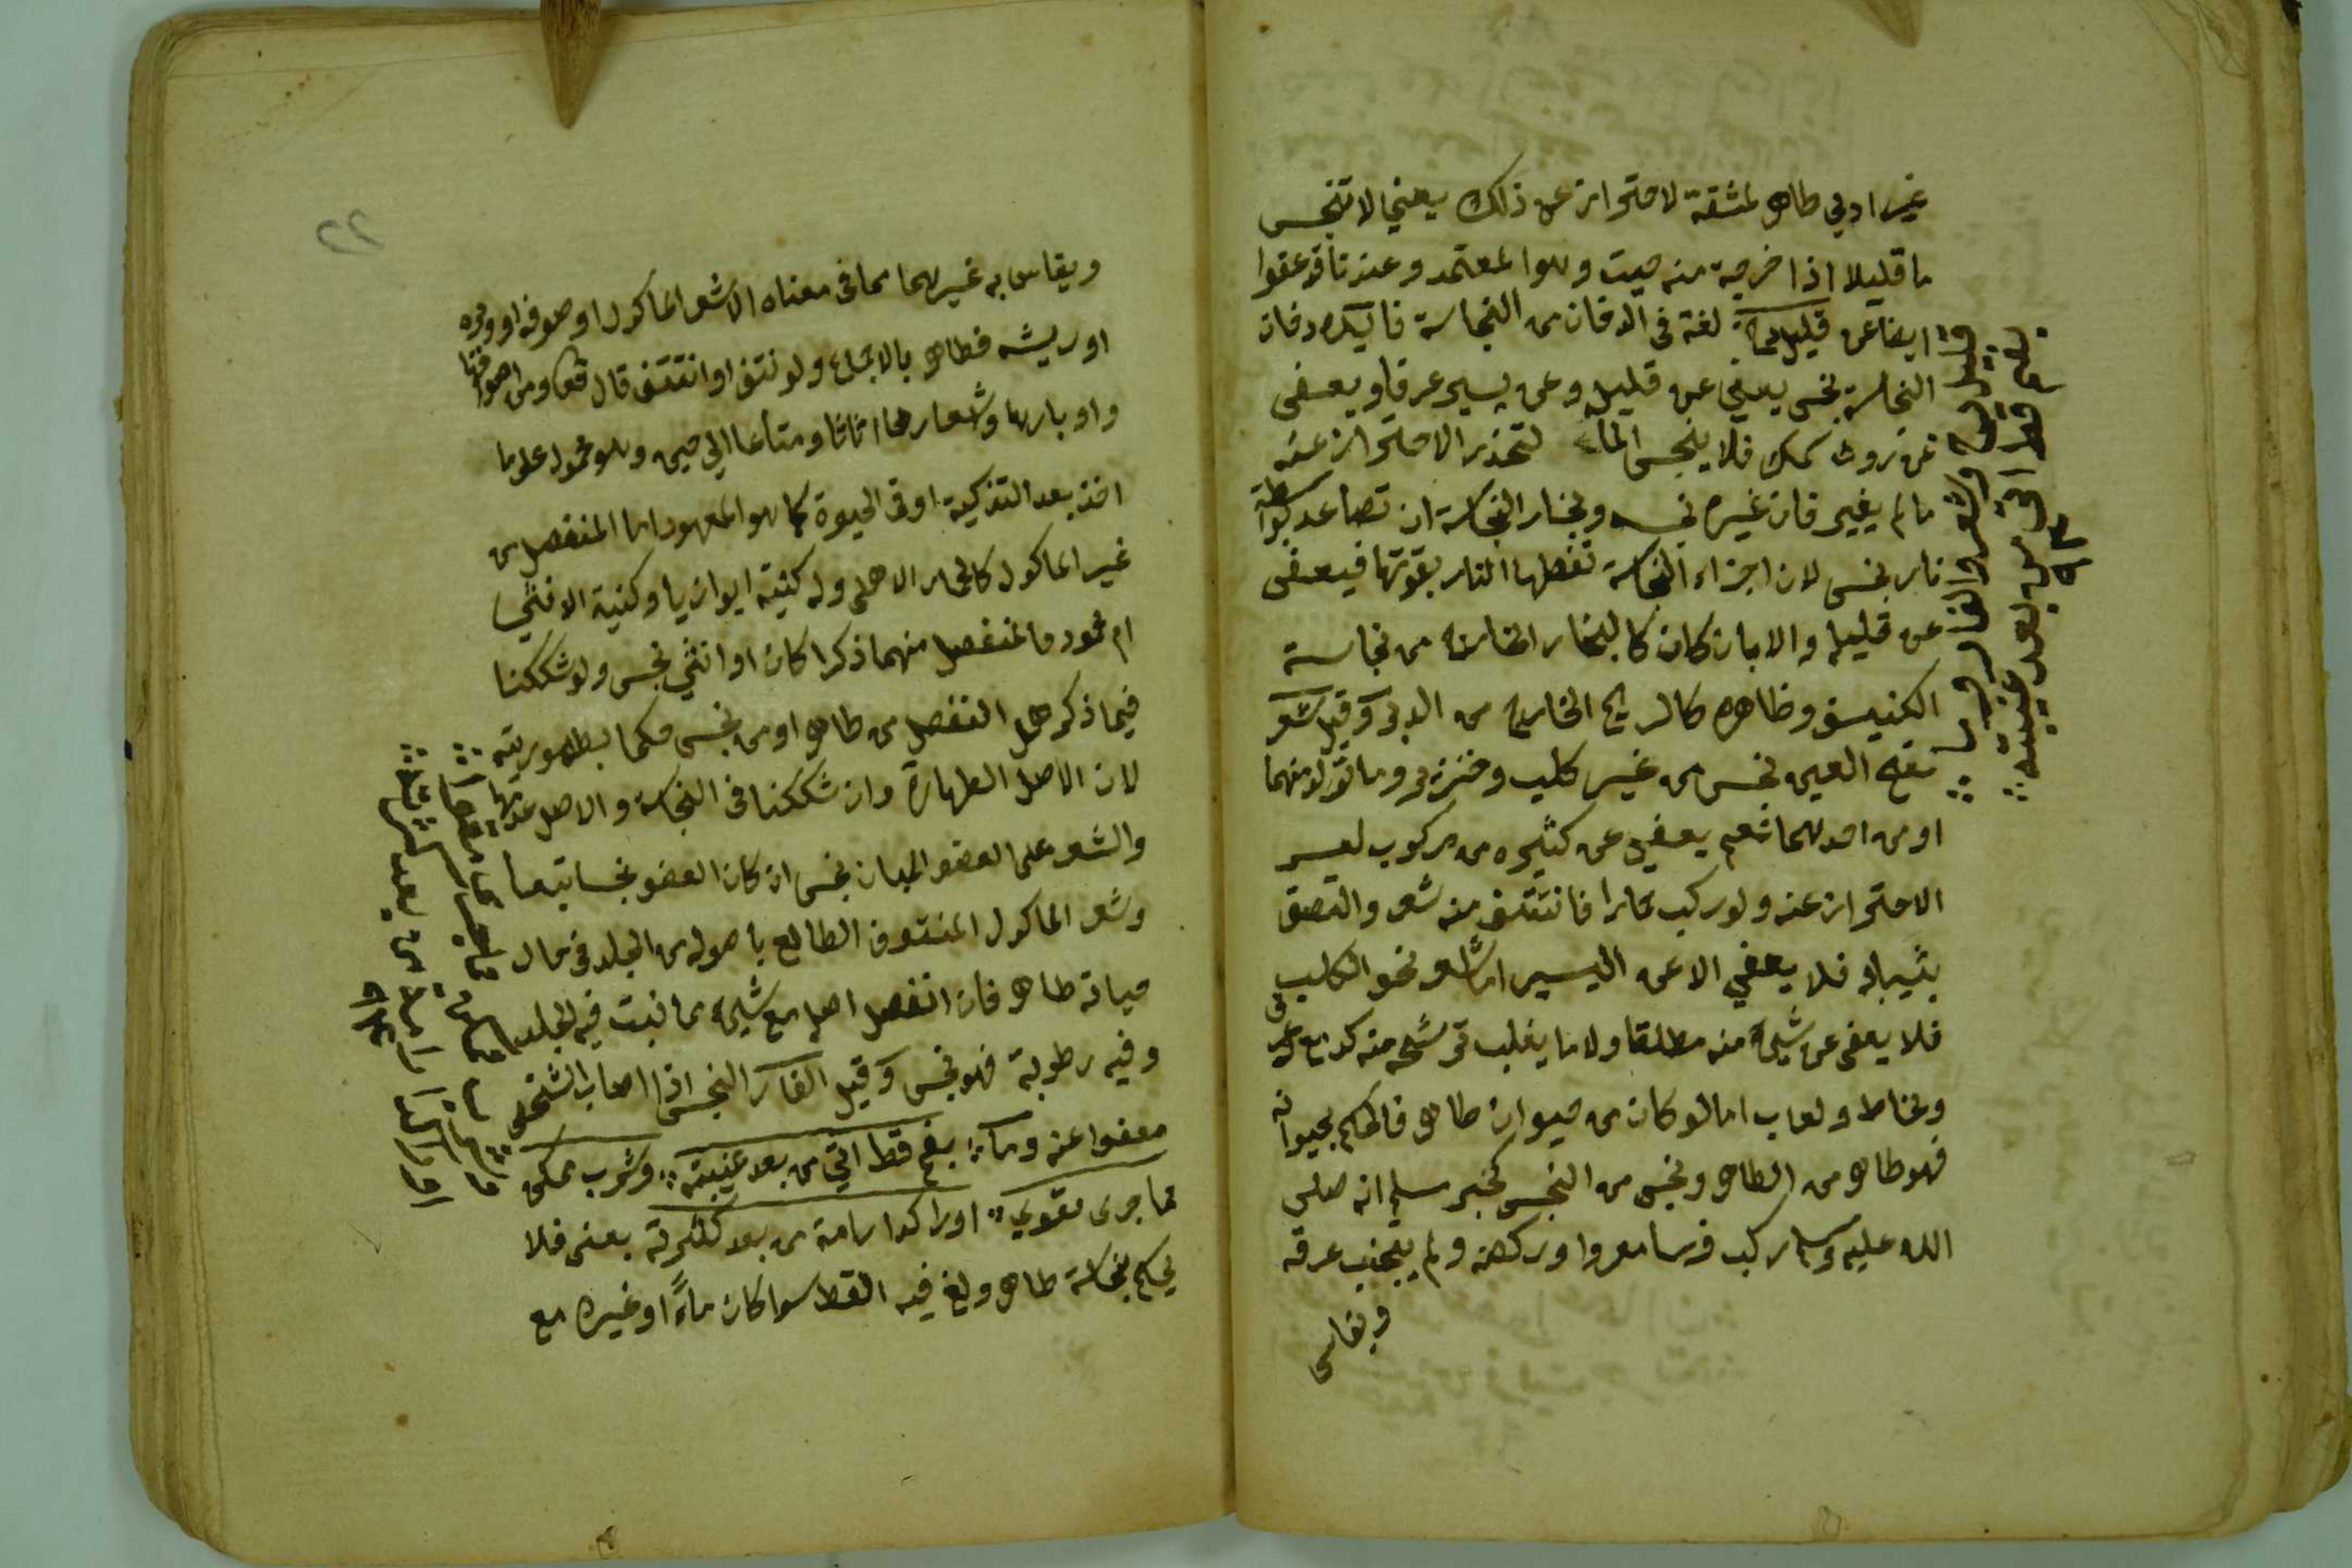 غير ادمي طاهر لمشقة لاحتراز عن ذلك يعني لا تنجس
ما قليلا اذا خرجة منه ميت وهو المعتمد وعند تاقد عفوا
ايضا عن قليل دخان لغة في الدخان من النجاسة فاليك دخان
النجاسة نجس يعفي عن قليل وعن يسير عرفا ويعفى
عن روث سمك فلا ينجس الماء لتعذر الاحتراز عنه
ما لم يغير فان غيره نجسه وبخار النجاسة ان تصاعد بواسطة
نار نجس لان اجزاء النجاسة تفصلها النار بقوتها فيعفى
عن قليله والا بان كان كالبخار الخارج من نجاسة
الكنيسف وطاهر كالريح الخارج من الدبر وقيل شعر
نعم العين نجس من غير كلب وخنزير وما تولد منهما
او من احدهما نعم يعفي عن كثيره من مركوب لعسر
الاحتراز عنه ولو ركب حمارا فانتتف منه شعر والتصق
بثيابه فلا يعفي الا عن اليسير اما شعر نحو الكلب
فلا يعفى عن شيء منه مطلقا ولا ما يغلب ترشحه منه كدمع عرق
ومخاط ولعاب اما لو كان من حيوان طاهر فالحكم بحيوانه
فهو طاهر من الطاهر ونجس من النجس لخبر مسلم انه صلى
الله عليه وسلم ركب فرسا معروا وركضه ولم يجتنب عرقه
ويقاس
قليل دخان وشعر والفار وما
بفم قط اتى من بعد غيبته
٩٣
٢٢
ويقاس به غيرهما مما في معناه الا شعر الماكول او صوفه او وبره
او ريشه فطاهر بالاجماع ولو نتف او انتتف قال تعالى ومن اصوافها
واوبارها واشعارها اثاثا ومتاعا الى حين وهو محمول على ما
اخذ بعد التذكية او في الحيوة كما هو المعهود اما المنفصل من
غير الماكول كالحمار الاهلي وله كنيته ابو زياد وكنية الانثى
ام محمود فالمنفصل منهما ذكرا كان او انثى نجس ولو شككنا
فيما ذكر هل انفصل من طاهر او من نجس حكما بطهوريته
لان الاصل الطهارة وان شككنا في النجاسة والاصل عدمها
والشعر على العضو المبان نجس ان كان العضو نجسا تبعا
وشعر الماكول المنتوف الطالع باصوله من الجلد في حال
حياته طاهر فان انفصل اصله مع شيء مما نبت فيه الجلد
وفيه رطوبة فهو نجس وقيل الفار النجس اذا اصاب الشخص
معفوا عنه وما بفم قط اتى من بعد غيبته وشرب ممكن
مما جرى مقوي او راكدا رامه من بعد كثرته يعني فلا
يحكم بنجاسة طاهر ولغ فيه القط سوا كان ماء او غيره مع